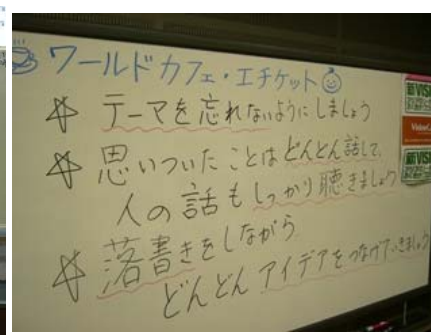 ワールドカフェ・エチケット
☆ テーマを忘れないようにしましょう
☆ 思いついたことはどんどん話して、
人の話もしっかり聴きましょう
☆ 落書きをしながら
どんどんアイデアをつなげていきましょう